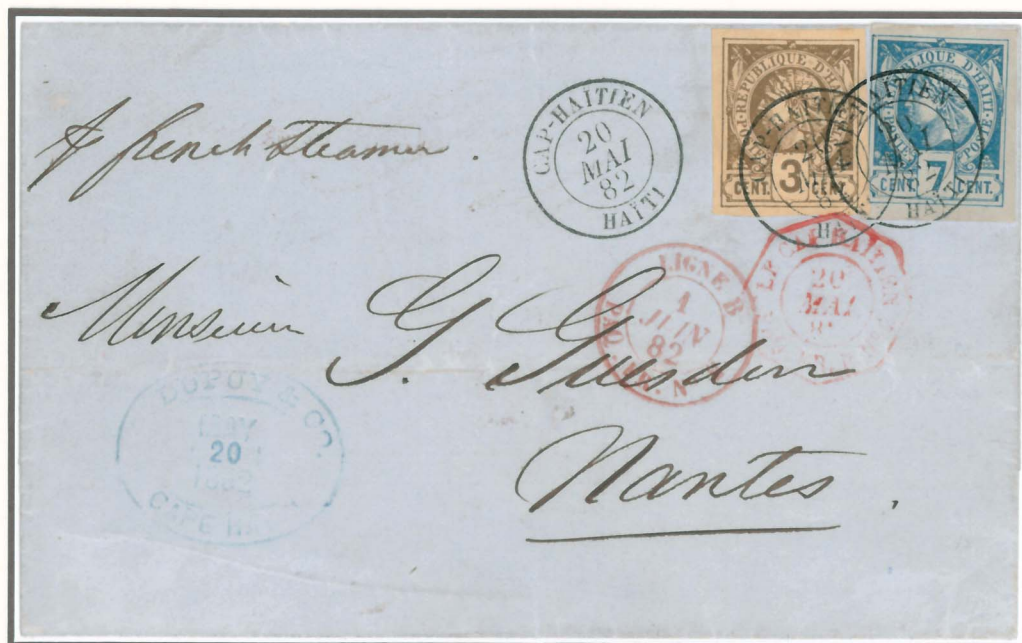 p french steamer.
CAP-HAÏTIEN
20
MAI
82
HAÏTI
POSTES-RÉPUBLIQUE D'HAITI-POSTES
CENT. 3 CENT.
RÉPUBLIQUE D'HAITI
CENT. 7 CENT.
CAP-HAÏTIEN
HAÏTI
LIGNE B
1
JUIN
82
PAQ. N
LE CAP HAITIEN
20
MAI
Monsieur G. Guesdon
Nantes.
DUPUY & CO.
MAY
20
1882
CAPE